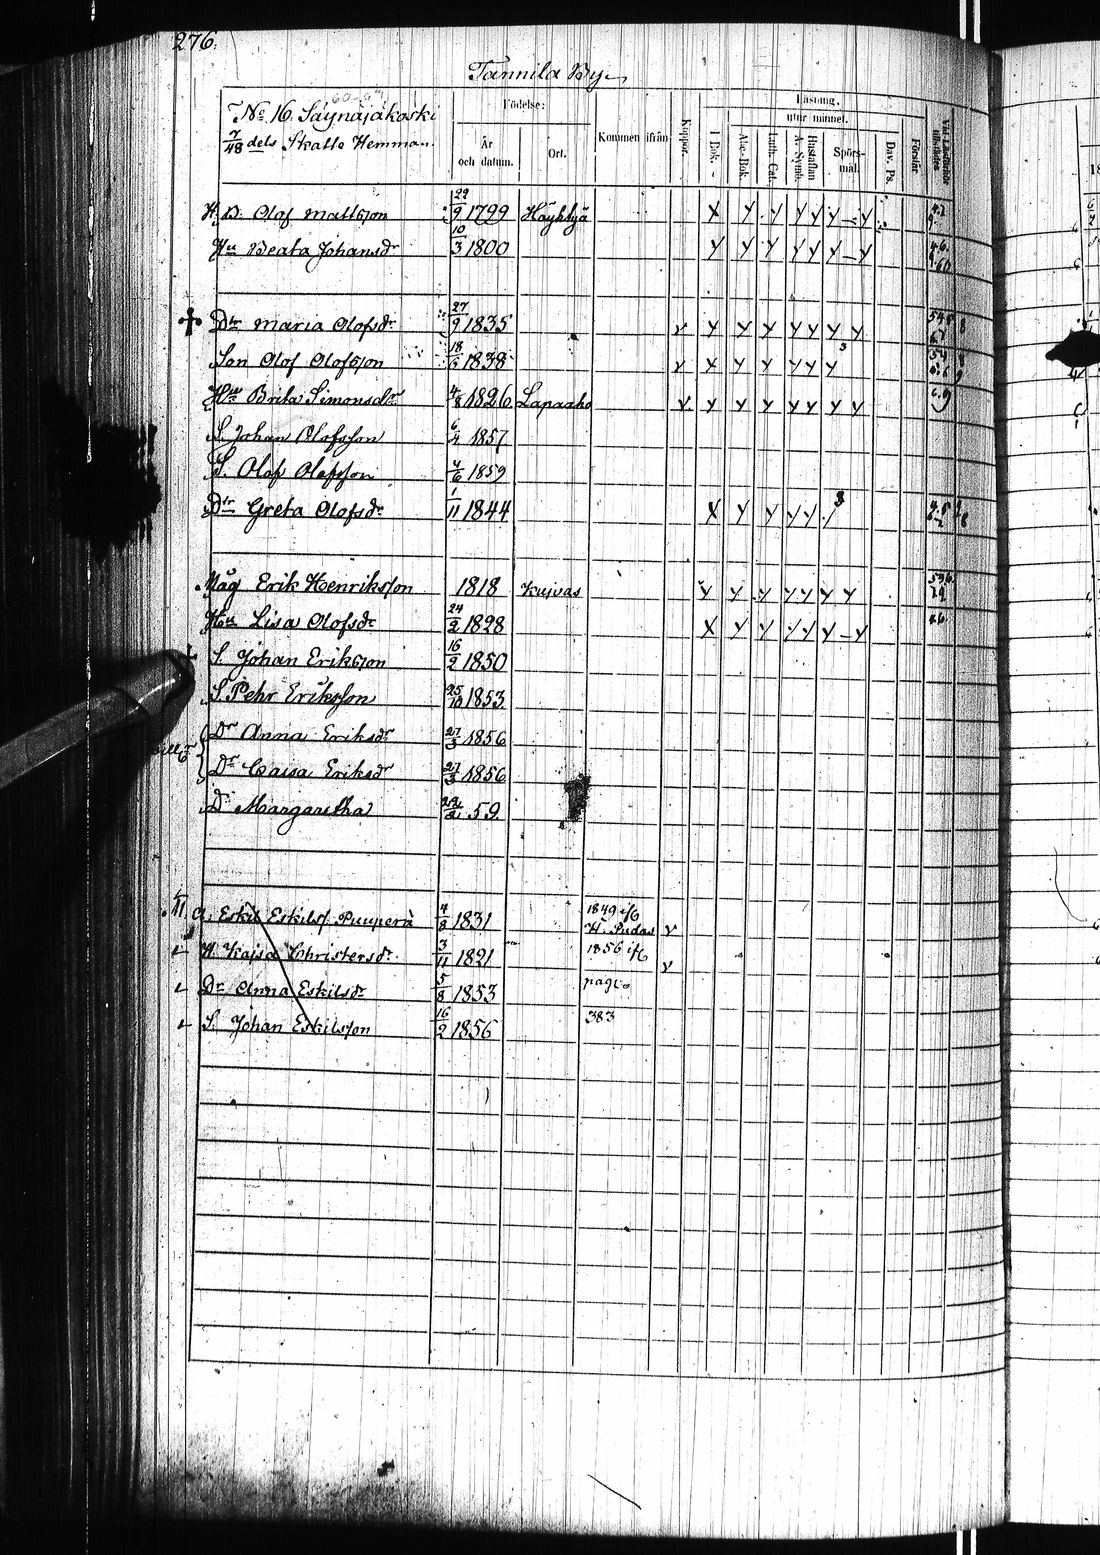 276.
Tannila By
60-69
No 16. Säynäjäkoski
7/48 dels Skatte Hemman.
Födelse:
År och datum.
Ort.
Kommen ifrån
Koppor.
Läsning.
utur minnet.
I Bok.
Abc-Bok.
Luth. Cat.
Hustaflan A. Symb.
Spörs-mål.
Dav. Ps.
Förstår
B. Olof Mattsson 29/9 1799 Höyhtyä
Hu Beata Johansdr 10/3 1800
Dtr Maria Olofsdr 27/9 1835
Son Olof Olofsson 18/5 1838
Hu Brita Simonsdr 4/8 1826 Lapaaho
S. Johan Olofsson 6/4 1857
S. Olof Olofsson 4/6 1859
Dtr Greta Olofsdr 1/11 1844
Måg Erik Henriksson 1818 Kuivas
Hu Lisa Olofsdr 24/2 1828
S. Johan Eriksson 16/2 1850
S. Pehr Eriksson 25/10 1853
Dr Anna Eriksdr 27/3 1856
Dr Caisa Eriksdr 27/3 1856
D. Margaretha 59
Eskil Eskilss. Puuperä 4/8 1831 1849 if H. Pudas
H. Kajsa Christersdr 3/11 1821 1856 if
Dr Anna Eskilsdr 5/8 1853 pag.
S. Johan Eskilsson 16/2 1856 383